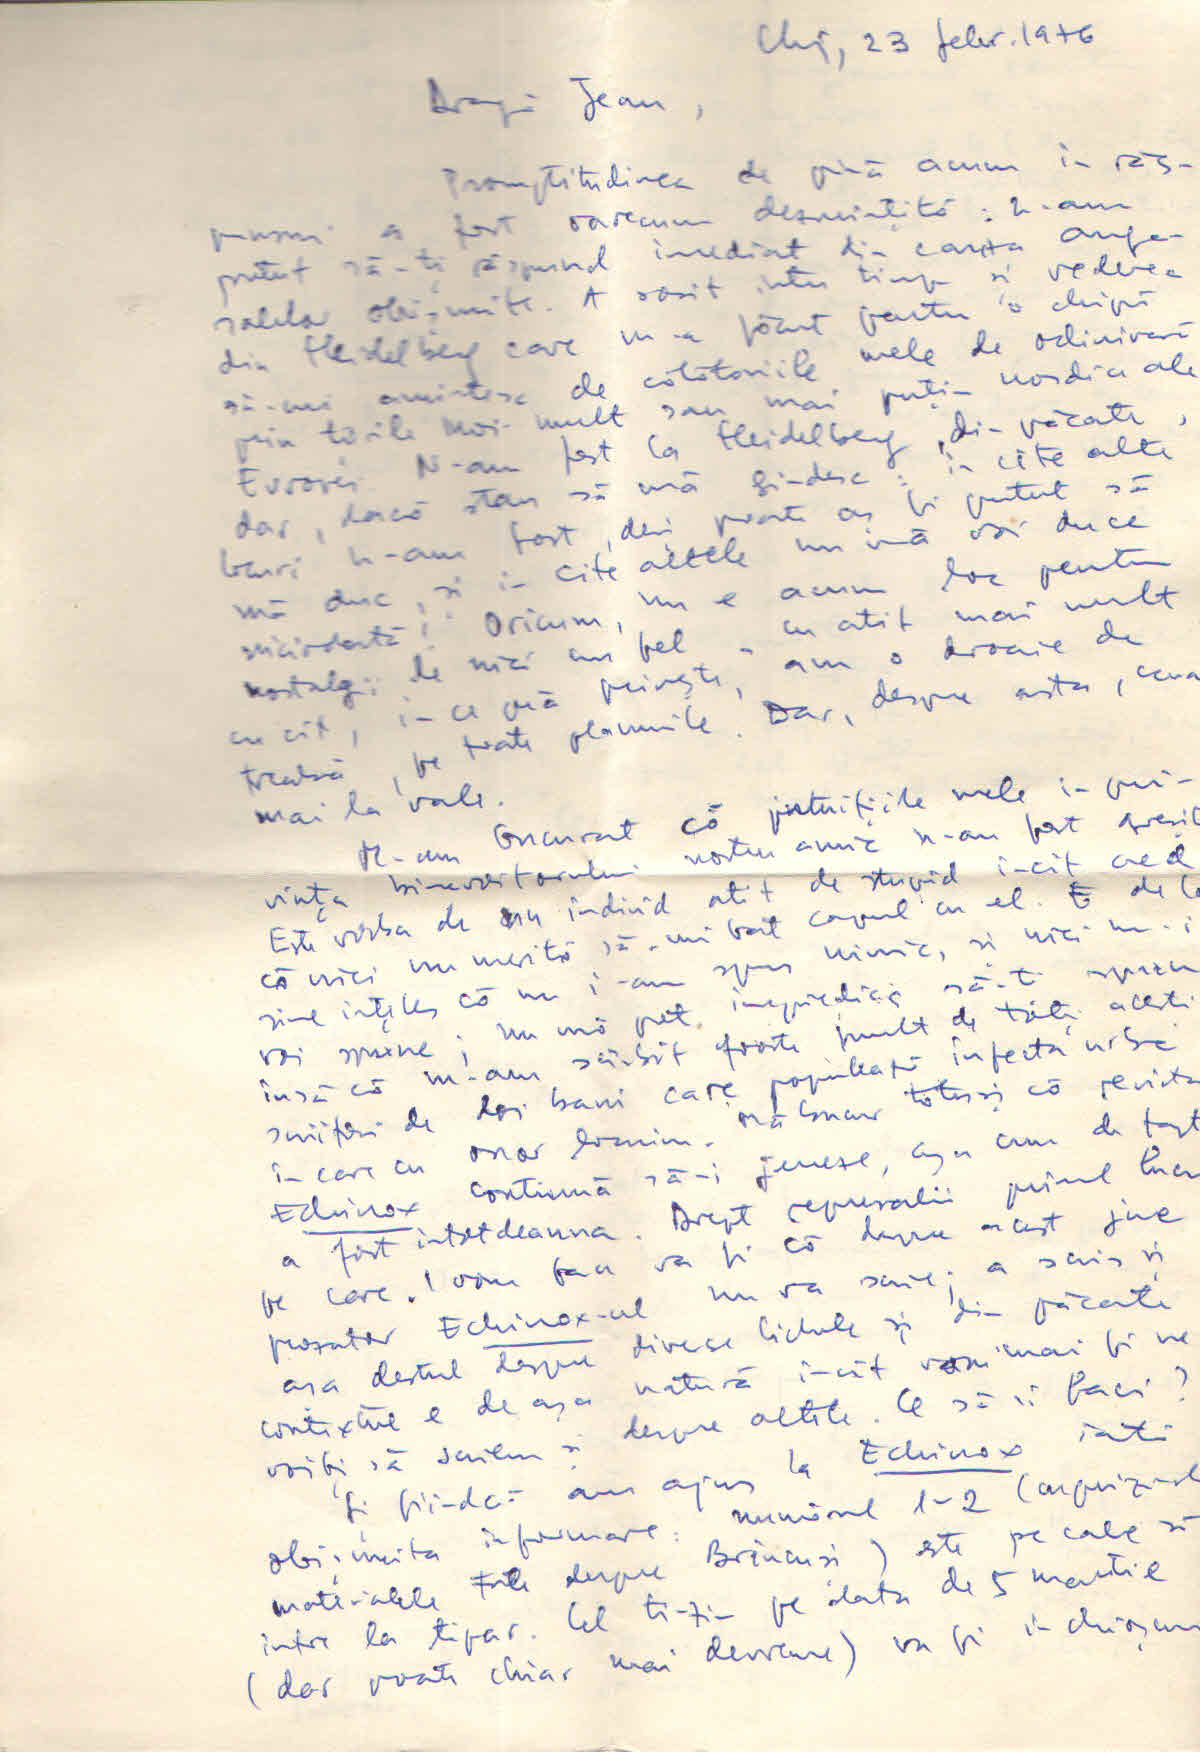 Cluj, 23 febr. 1976
Dragă Jean,
Promptitudinea de pînă acum în răs-
punsuri a fost oarecum dezmințită: n-am
putut să-ți răspund imediat din cauza anga-
ralelor obișnuite. A sosit între timp și vederea
din Heidelberg care m-a făcut pentru o clipă
să-mi amintesc de călătoriile mele de odinioară
prin țările mai mult sau mai puțin nordice ale
Europei. N-am fost la Heidelberg, din păcate,
dar, dacă stau să mă gîndesc: în cîte alte
locuri n-am fost, deși poate aș fi putut să
mă duc, și în cîte altele nu mă voi duce
niciodată! Oricum, nu e acum loc pentru
nostalgii de nici un fel - cu atît mai mult
cu cît, în ce mă privește, am o droaie de
treabă, pe toate planurile. Dar, despre asta, ceva
mai la vale.
M-am bucurat că intuițiile mele în pri-
vința binevoitorului nostru amic n-au fost greșite
Este vorba de un individ atît de stupid încît cred
că nici nu merită să-mi bat capul cu el. E de la
sine înțeles că nu i-am spus nimic, și nici nu-i
voi spune; nu mă pot împiedica să-ți spun
însă că m-am scîrbit foarte mult de toți acești
de doi bani care populează infecta urbe
în care cu onor locuim. Mă bucur totuși că revista
Echinox continuă să-i jeneze, așa cum de fapt
a făcut întotdeauna. Drept represalii primul lucru
pe care-l vom face va fi că despre acest
prozator Echinox-ul nu va scrie; a scris și
așa destul despre diverse lichele și din păcate
contextul e de așa natură încît vom mai fi ne-
voiți să scriem și despre altele. Ce să-i faci?
Și fiindcă am ajuns la Echinox iată
obișnuita informare: numărul 1-2 (cuprinzînd
materialele tale despre Brâncuși) este pe cale să
intre la tipar. Cel tîrziu pe data de 5 martie
(dar poate chiar mai devreme) va fi în chioșcuri